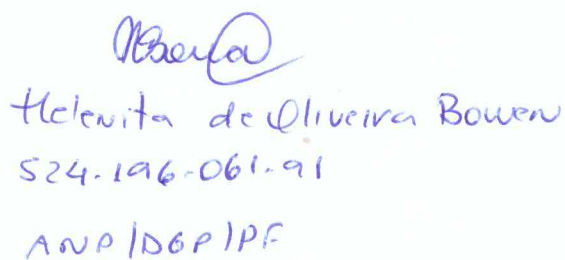 Helenita de Oliveira Bowen
524.196.061.91
ANP/DGP/PF